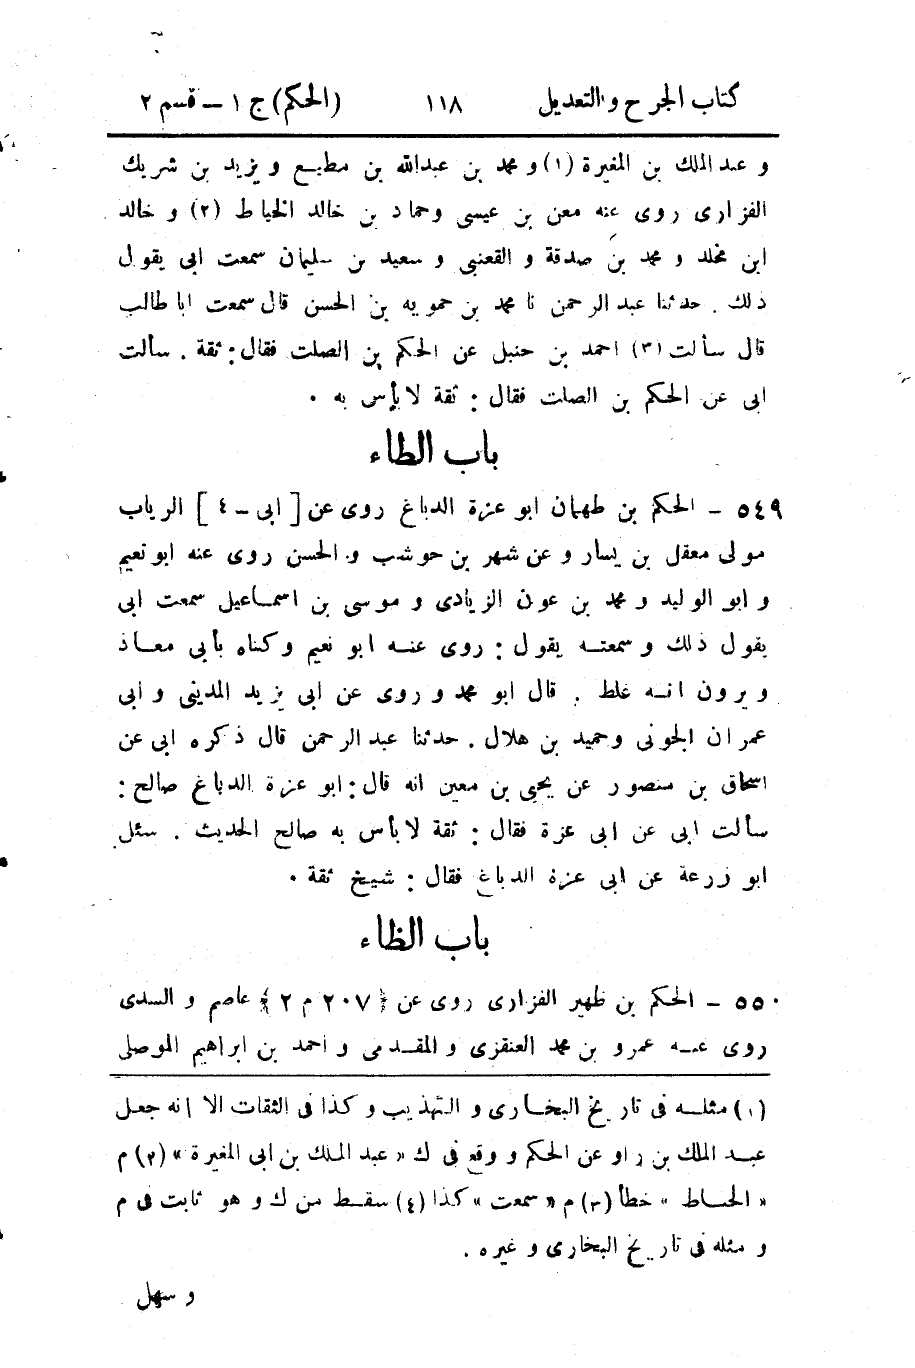 كتاب الجرح والتعديل ١١٨ (الحكم) ج ١ – قسم ٢
و عبد الملك بن المغيرة (١) و محمد بن عبدالله بن مطيع و يزيد بن شريك
الفزارى روى عنه معن بن عيسى وحماد بن خالد الخياط (٢) و خالد
ابن مخلد و محمد بن صدقة و القعنبى و سعيد بن سليمان سمعت ابى يقول
ذلك . حدثنا عبد الرحمن نا محمد بن حمويه بن الحسن قال سمعت ابا طالب
قال سألت (٣) احمد بن حنبل عن الحكم بن الصلت فقال : ثقة . سألت
ابى عن الحكم بن الصلت فقال : ثقة لا بأس به .
باب الطاء
٥٤٩ – الحكم بن طهمان ابو عزة الدباغ روى عن [ ابى – ٤ ] الرباب
مولى معقل بن يسار و عن شهر بن حوشب و الحسن روى عنه ابو نعيم
و ابو الوليد و محمد بن عون الزيادى و موسى بن اسماعيل سمعت ابى
يقول ذلك و سمعته يقول : روى عنه ابو نعيم وكناه بأبى معاذ
و يرون انه غلط . قال ابو محمد و روى عن ابى يزيد المدينى و ابى
عمران الجونى وحميد بن هلال . حدثنا عبد الرحمن قال ذكره ابى عن
اسحاق بن منصور عن يحيى بن معين انه قال : ابو عزة الدباغ صالح :
سألت ابى عن ابى عزة فقال : ثقة لا بأس به صالح الحديث . سئل
ابو زرعة عن ابى عزة الدباغ فقال : شيخ ثقة .
باب الظاء
٥٥٠ – الحكم بن ظهير الفزارى روى عن ﴿ ٢٠٧ م ٢ ﴾ عاصم و السدى
روى عنه عمرو بن محمد العنقزى و المقدمى و احمد بن ابراهيم الموصلى
(١) مثله فى تاريخ البخارى و التهذيب و كذا فى الثقات الا انه جعل
عبد الملك بن راو عن الحكم و وقع فى ك « عبد الملك بن ابى المغيرة » (٢) م
« الحناط » خطأ (٣) م « سمعت » كذا (٤) سقط من ك و هو ثابت فى م
و مثله فى تاريخ البخارى و غيره .
و سهل